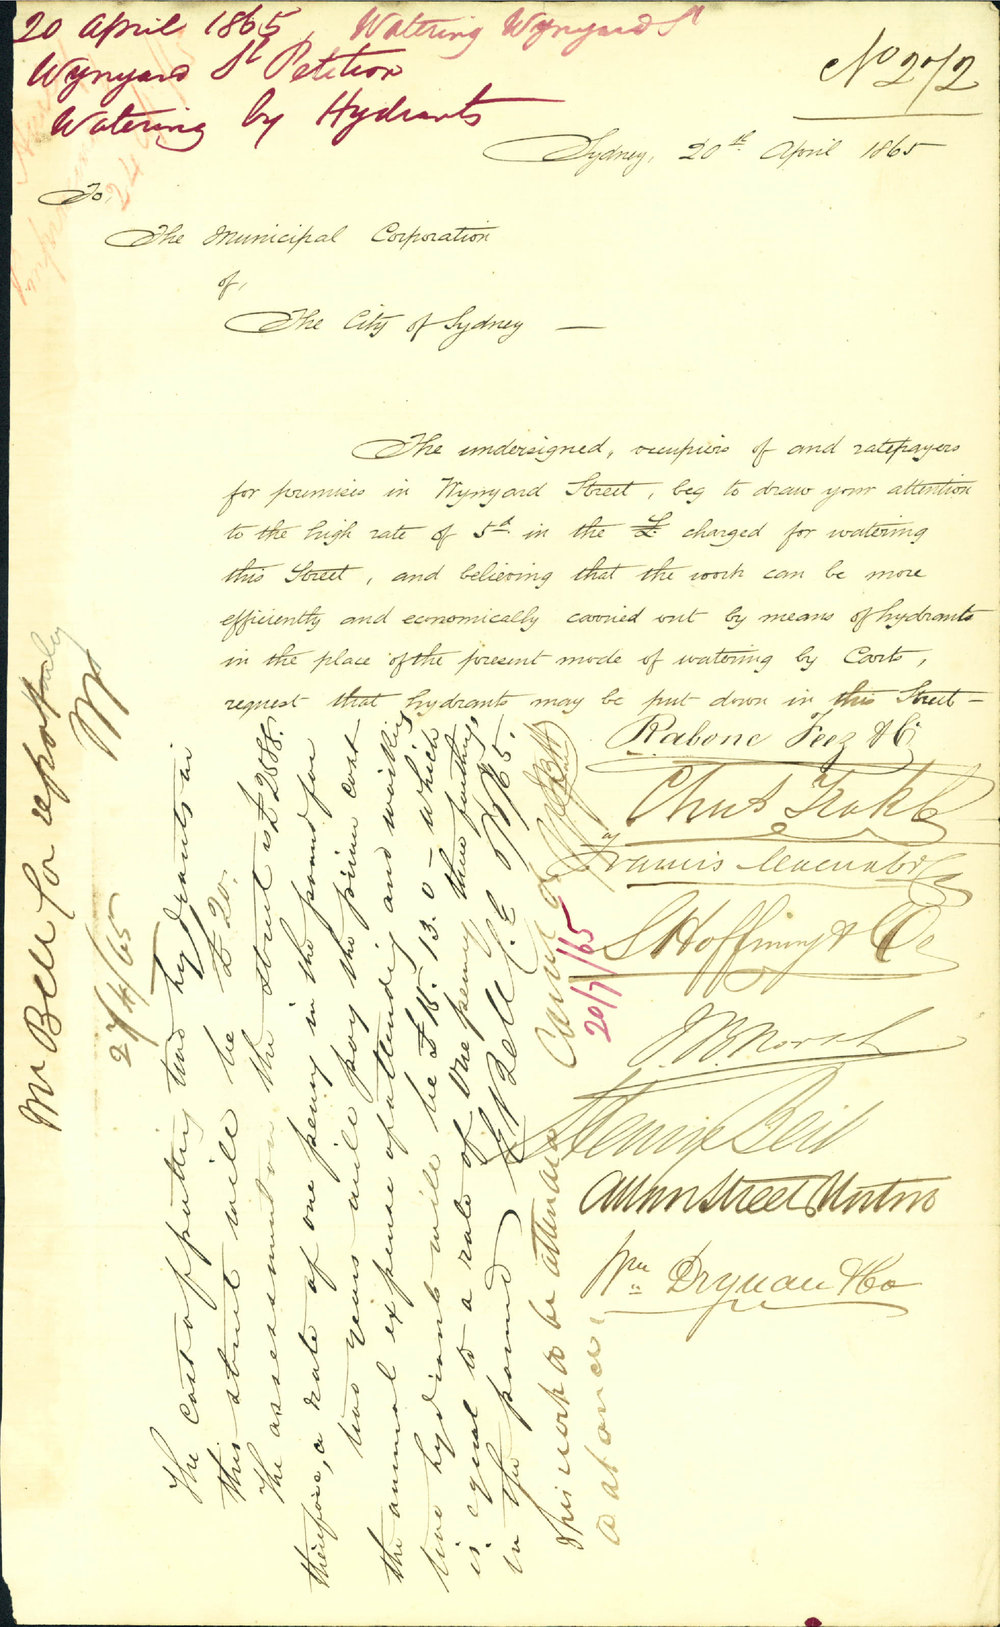 20 April 1865, Watering Wynyard St
Wynyard St Petition
Watering by Hydrants
No 272
Sydney, 20th April 1865
To,
The Municipal Corporation
of,
The City of Sydney —
The undersigned, occupiers of and ratepayers
for premises in Wynyard Street, beg to draw your attention
to the high rate of 5d in the £ charged for watering
this Street, and believing that the work can be more
efficiently and economically carried out by means of hydrants
in the place of the present mode of watering by Carts,
request that hydrants may be put down in this Street —
Rabone Feez & Co
Francis Macnab & Co
S Hoffnung & Co
Wm Drynan & Co
Mr Bell for report
27/4/65
The cost of putting two hydrants in
this street will be £20.
The assessment on the street is £2588.
therefore, a rate of one penny in the pound for
two years will pay the prime cost
the annual expense of attending and working
two hydrants will be £15.13.0 – which
is equal to a rate of one penny three farthings
in the pound
20/7/65
This work to be attended
to at once